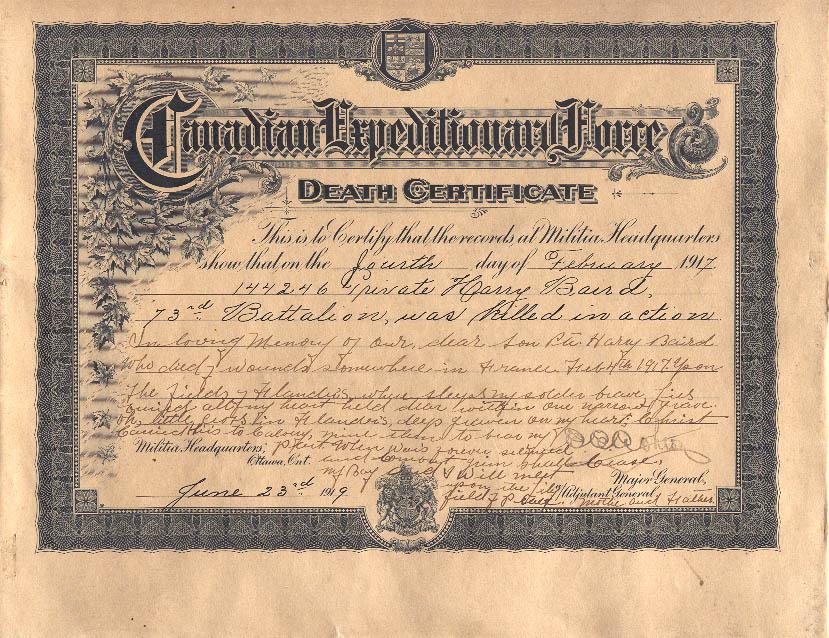 Canadian Expeditionary Force
DEATH CERTIFICATE
This is to Certify that the records at Militia Headquarters
show that on the fourth day of February 1917.
144246 Private Harry Baird,
73rd. Battalion, was Killed in action
In loving Memory of our dear Son Pte Harry Baird
Who died of wounds somewhere in France Feb 4th 1917
The fields of Flanders, where sleeps my soldier brave lies
all my heart held dear within one narrow grave
Oh little Cross in Flanders, deep graven on my heart, Christ
His to Calvary mine to bear my
Militia Headquarters, part When wars forever
Ottawa, Ont. and
my Boy and I Will meet Major General,
upon the
June 23rd. 1919. field of Adjutant General. Mother and Father